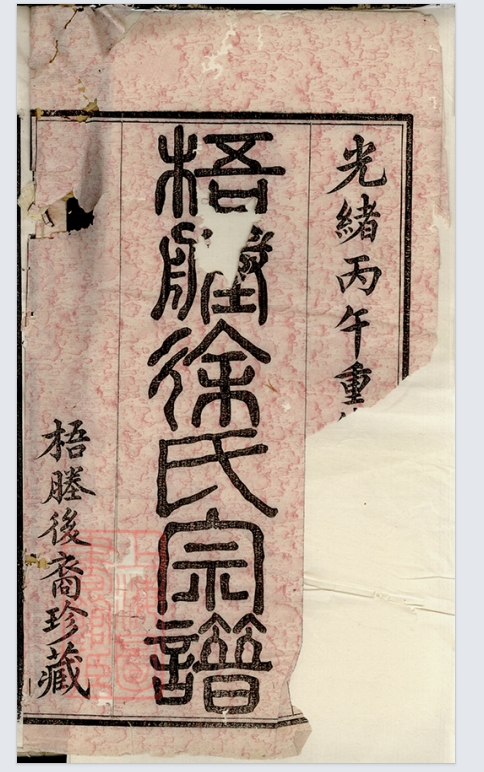 光緒丙午重
梧塍徐氏宗譜
梧塍後裔珍藏